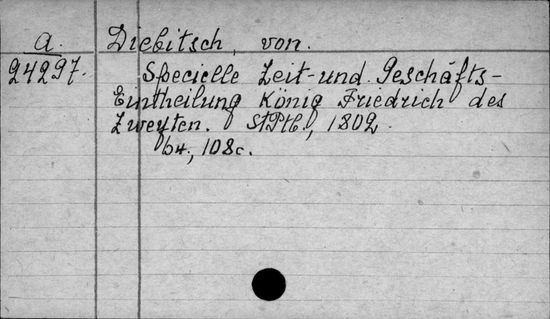 A. Diebitsch, von.
24297. Specielle Zeit- und Geschäfts-
Eintheilung König Friedrich des
Zweyten. StPtb., 1802.
b4., 108c.